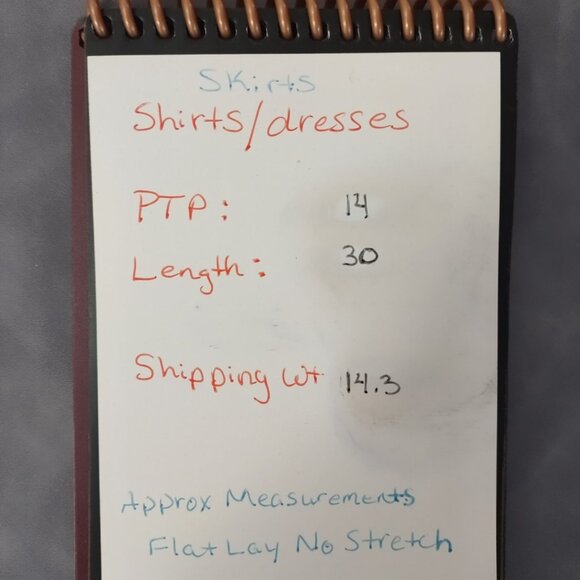 Skirts
Shirts/dresses
PTP: 14
Length: 30
Shipping Wt 14.3
Approx Measurements
Flat Lay No Stretch